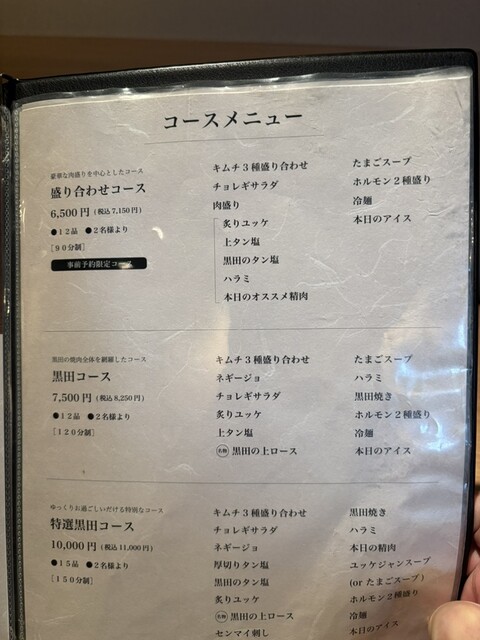 コースメニュー
豪華な肉盛りを中心としたコース
盛り合わせコース
6,500円（税込7,150円）
●12品 ●2名様より
［90分制］
事前予約限定コース
キムチ3種盛り合わせ
チョレギサラダ
肉盛り
炙りユッケ
上タン塩
黒田のタン塩
ハラミ
本日のオススメ精肉
たまごスープ
ホルモン2種盛り
冷麺
本日のアイス
黒田の焼肉全体を網羅したコース
黒田コース
7,500円（税込8,250円）
●12品 ●2名様より
［120分制］
キムチ3種盛り合わせ
ネギージョ
チョレギサラダ
炙りユッケ
上タン塩
名物 黒田の上ロース
たまごスープ
ハラミ
黒田焼き
ホルモン2種盛り
冷麺
本日のアイス
ゆっくりお過ごしいただける特別なコース
特選黒田コース
10,000円（税込11,000円）
●15品 ●2名様より
［150分制］
キムチ3種盛り合わせ
チョレギサラダ
ネギージョ
厚切りタン塩
黒田のタン塩
炙りユッケ
名物 黒田の上ロース
センマイ刺し
黒田焼き
ハラミ
本日の精肉
ユッケジャンスープ
(or たまごスープ)
ホルモン2種盛り
冷麺
本日のアイス